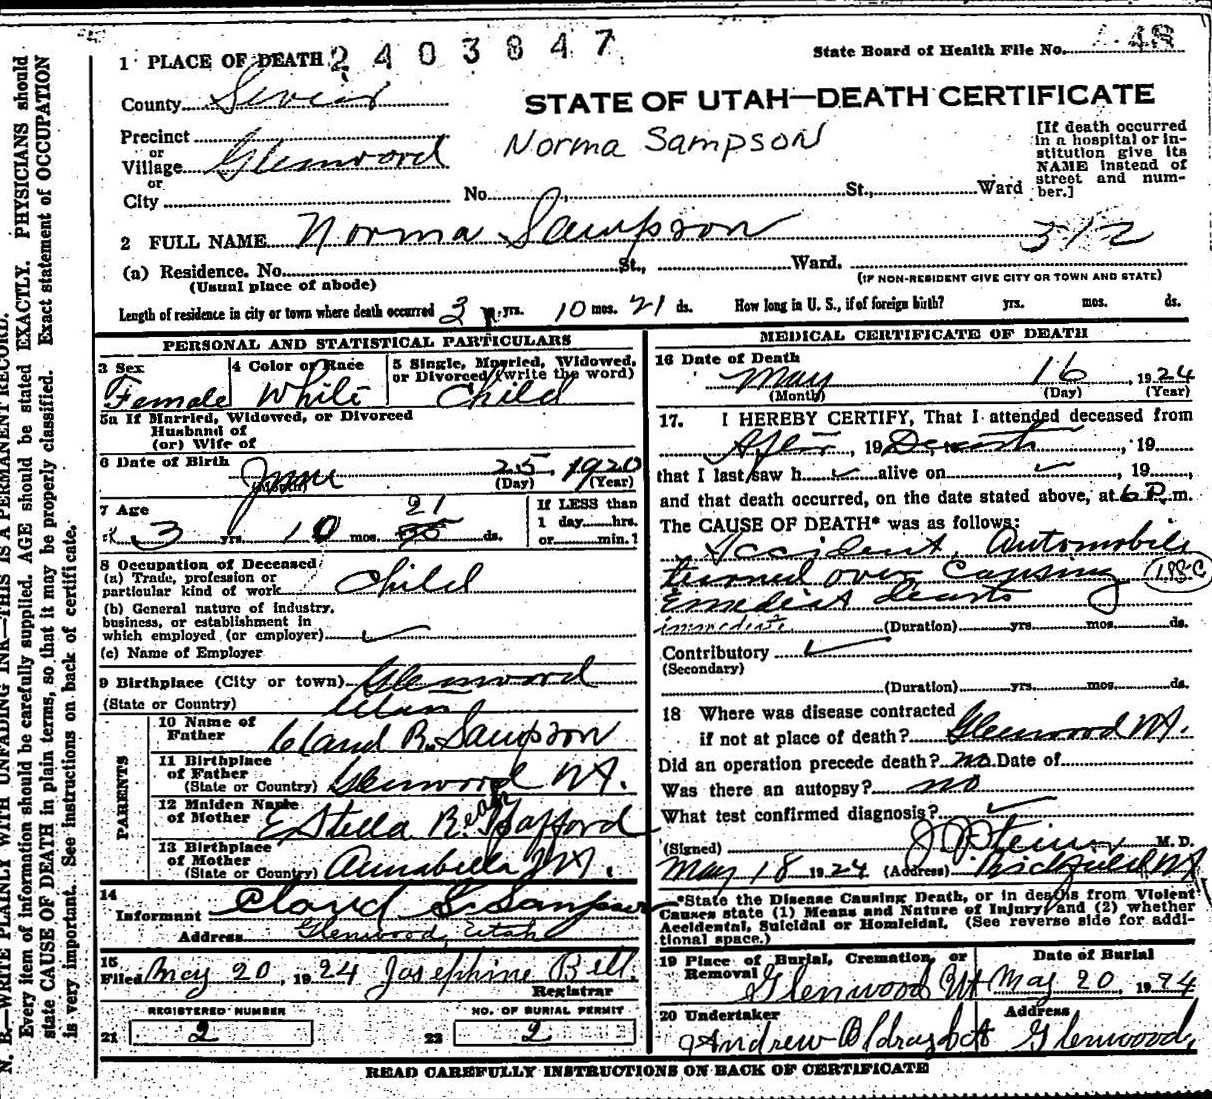 2403847
State Board of Health File No. 48
1 PLACE OF DEATH
County Sevier
STATE OF UTAH—DEATH CERTIFICATE
Norma Sampson
Precinct
or
Village Glenwood
or
City
No. St., Ward
[If death occurred
in a hospital or in-
stitution give its
NAME instead of
street and num-
ber.]
2 FULL NAME Norma Sampson
312
(a) Residence. No. St., Ward.
(Usual place of abode)
(IF NON-RESIDENT GIVE CITY OR TOWN AND STATE)
Length of residence in city or town where death occurred 3 yrs. 10 mos. 21 ds. How long in U. S., if of foreign birth? yrs. mos. ds.
PERSONAL AND STATISTICAL PARTICULARS
3 Sex
Female
4 Color or Race
White
5 Single, Married, Widowed,
or Divorced (write the word)
Child
5a If Married, Widowed, or Divorced
Husband of
(or) Wife of
6 Date of Birth
June 25, 1920
(Month) (Day) (Year)
7 Age
3 yrs. 10 mos. 21 ds.
If LESS than
1 day hrs.
or min.?
8 Occupation of Deceased
(a) Trade, profession or
particular kind of work Child
(b) General nature of industry,
business, or establishment in
which employed (or employer)
(c) Name of Employer
9 Birthplace (City or town) Glenwood
(State or Country) Utah
PARENTS
10 Name of
Father
Claud R. Sampson
11 Birthplace
of Father
(State or Country) Glenwood Ut.
12 Maiden Name
of Mother
Estella
13 Birthplace
of Mother
(State or Country) Annabella Ut.
14
Informant Claud S. Sampson
Address Glenwood, Utah
15
Filed May 20, 1924 Josephine Bell
Registrar
REGISTERED NUMBER
21 2
NO. OF BURIAL PERMIT
22 2
MEDICAL CERTIFICATE OF DEATH
16 Date of Death
May 16, 1924
(Month) (Day) (Year)
17. I HEREBY CERTIFY, That I attended deceased from
After, 19 Death, 19
that I last saw h alive on , 19 ,
and that death occurred, on the date stated above, at 6 P. m.
The CAUSE OF DEATH* was as follows:
Accident, Automobile
turned over Causing 188C
death
immediate (Duration) yrs. mos. ds.
Contributory
(Secondary)
(Duration) yrs. mos. ds.
18 Where was disease contracted
if not at place of death? Glenwood Ut.
Did an operation precede death? no Date of
Was there an autopsy? no
What test confirmed diagnosis?
(Signed) M. D.
May 18 1924 (Address) Richfield Ut
*State the Disease Causing Death, or in deaths from Violent
Causes state (1) Means and Nature of Injury and (2) whether
Accidental, Suicidal or Homicidal. (See reverse side for addi-
tional space.)
19 Place of Burial, Cremation, or
Removal
Glenwood Ut
Date of Burial
May 20, 1924
20 Undertaker
Andrew
Address
Glenwood
READ CAREFULLY INSTRUCTIONS ON BACK OF CERTIFICATE
N. B.—WRITE PLAINLY WITH UNFADING INK—THIS IS A PERMANENT RECORD.
Every item of information should be carefully supplied. AGE should be stated EXACTLY. PHYSICIANS should
state CAUSE OF DEATH in plain terms, so that it may be properly classified. Exact statement of OCCUPATION
is very important. See instructions on back of certificate.